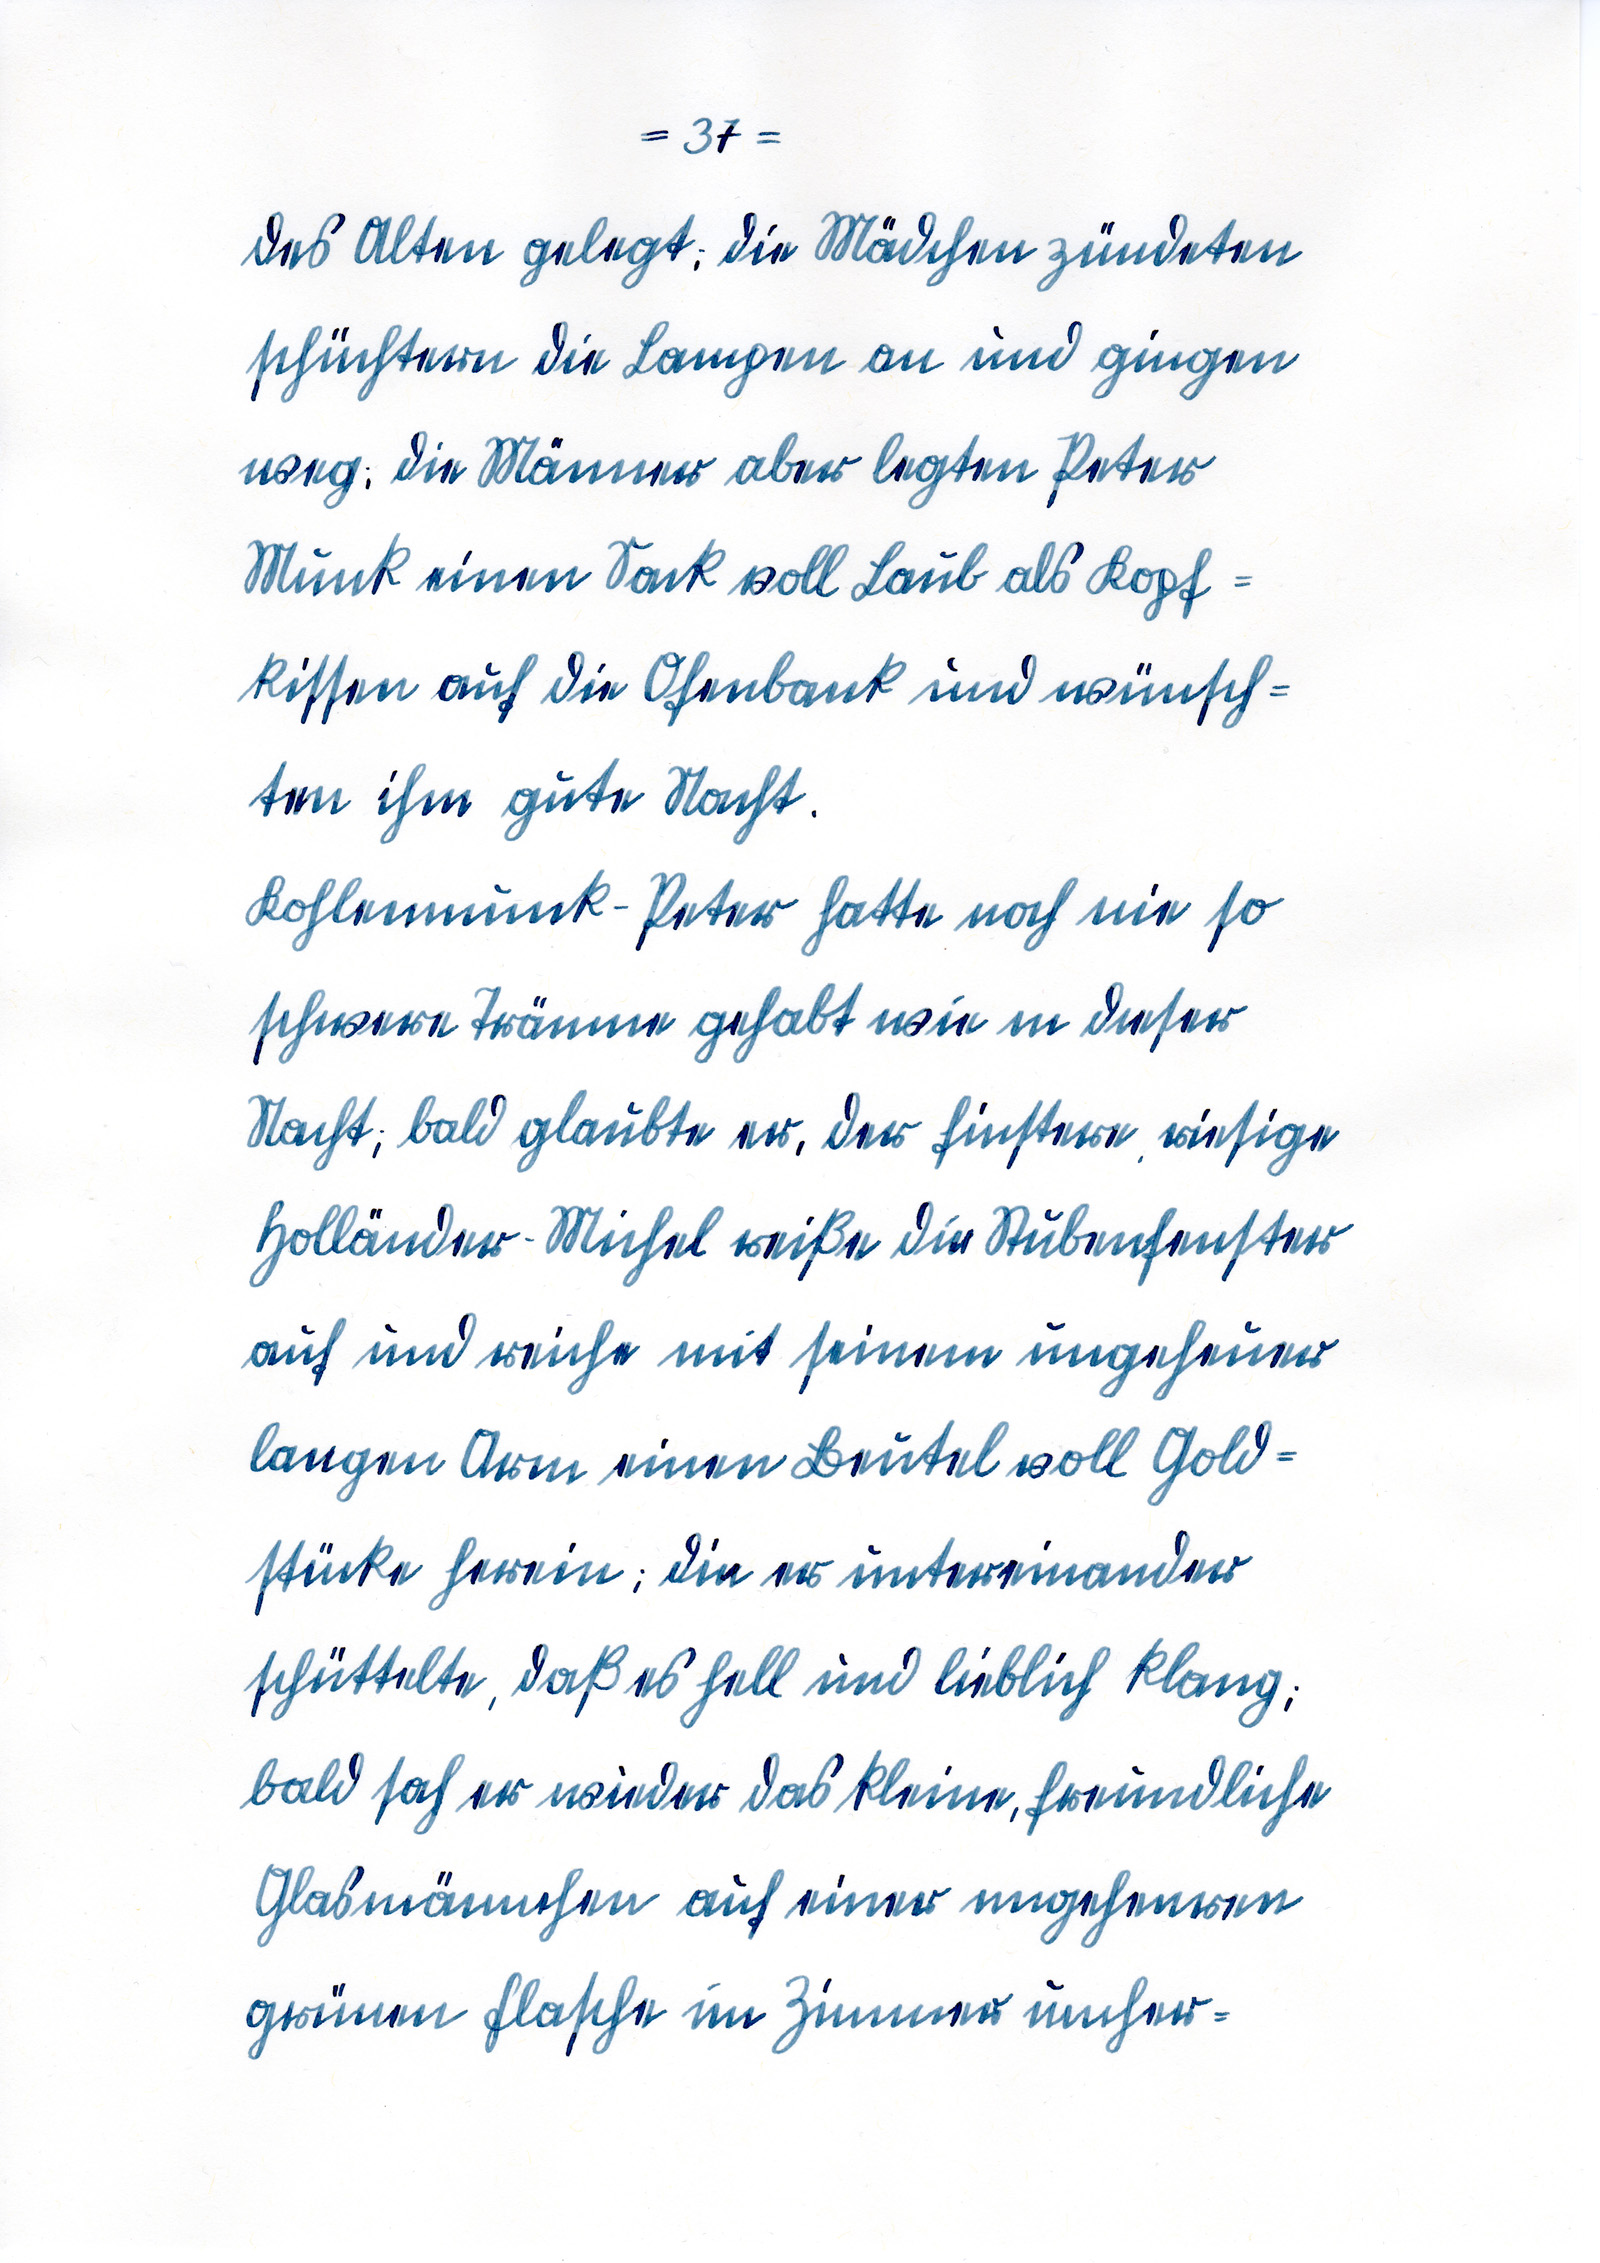 = 37 =
des Alten gelegt; die Mädchen zündeten
schüchtern die Lampen an und gingen
weg; die Männer aber legten Peter
Munk einen Sack voll Laub als Kopf =
kissen auf die Ofenbank und wünsch=
ten ihm gute Nacht.
Kohlenmunk-Peter hatte noch nie so
schwere Träume gehabt wie in dieser
Nacht; bald glaubte er, der finstere, riesige
Holländer-Michel reiße die Stubenfenster
auf und reiche mit seinem ungeheuer
langen Arm einen Beutel voll Gold=
stücke herein; die er untereinander
schüttelte, daß es hell und lieblich klang;
bald sah er wieder das kleine, freundliche
Glasmännchen auf einer ungeheuren
grünen Flasche im Zimmer umher=